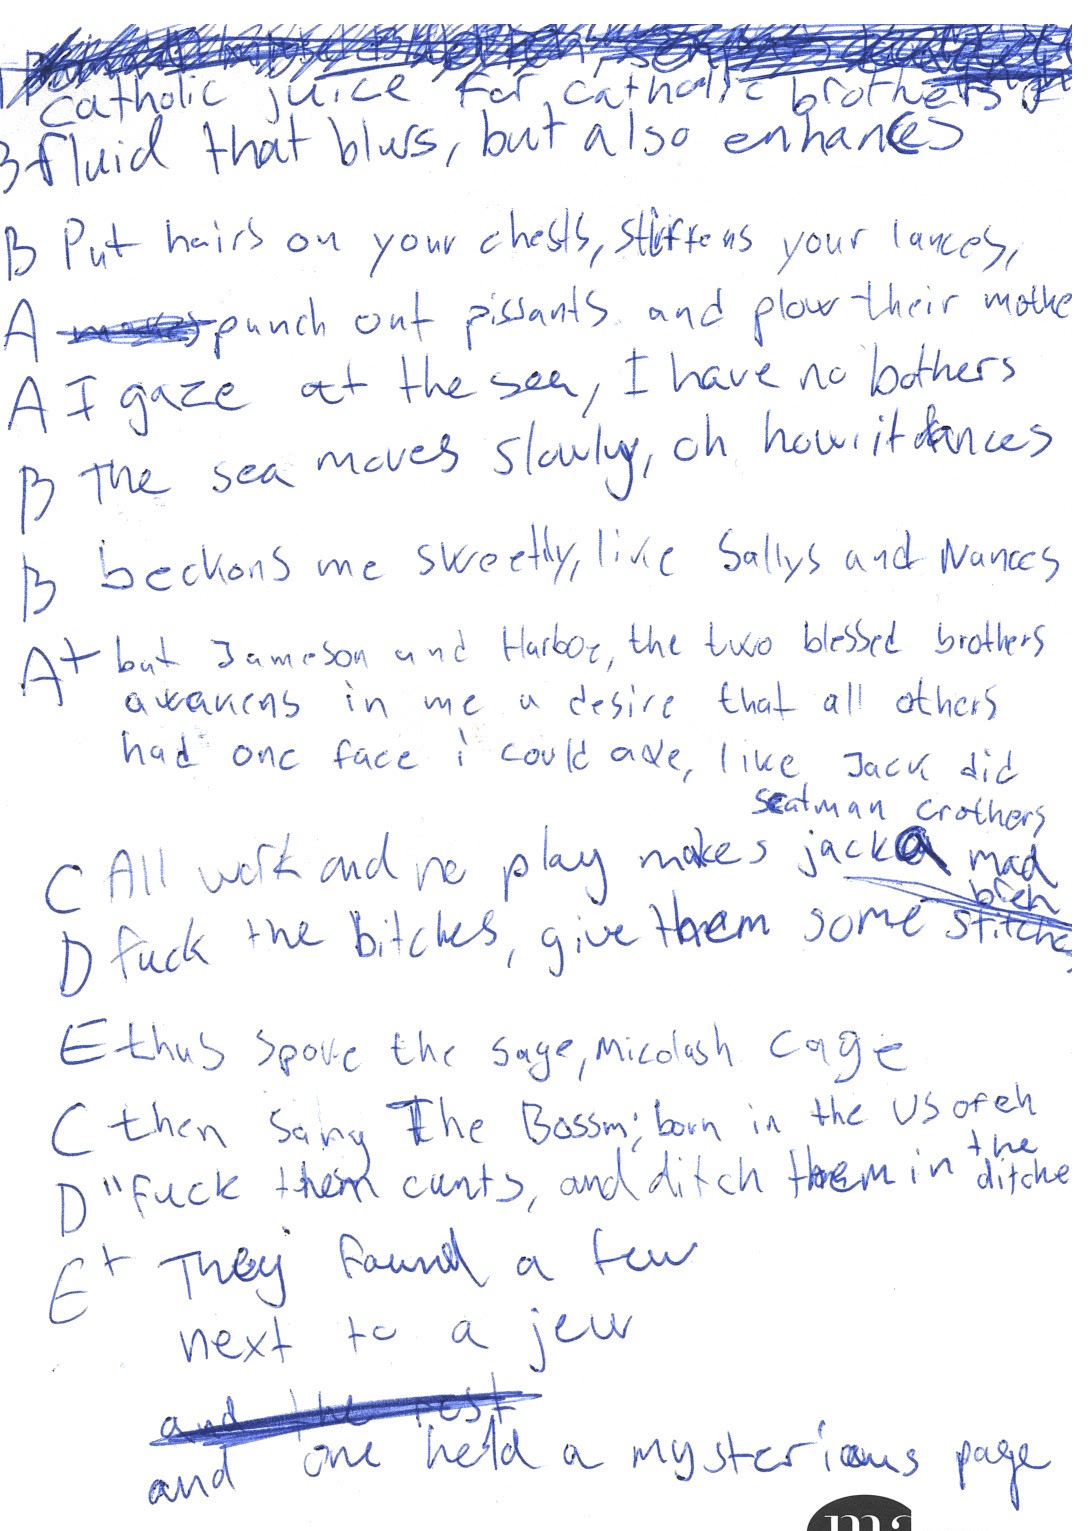 catholic juice for catholic brothers
B fluid that blurs, but also enhances
B Put hairs on your chests, stiffens your lances,
A punch out pissants and plow their mothe
A I gaze at the sea, I have no bothers
B The sea moves slowly, oh how it dances
B beckons me sweetly, like Sallys and Nances
A+ but Jameson and Harboe, the two blessed brothers
awakens in me a desire that all others
had one face i could axe, like Jack did
Scatman Crothers
C All work and no play makes jack a mad
bieh
D fuck the bitches, give them some stitches
E thus spoke the sage, Micolash Cage
C then sang The Bossm; born in the US of eh
D "fuck them cunts, and ditch them in the
ditche
E+ They found a few
next to a jew
and the rest
and one held a mysterious page
ma